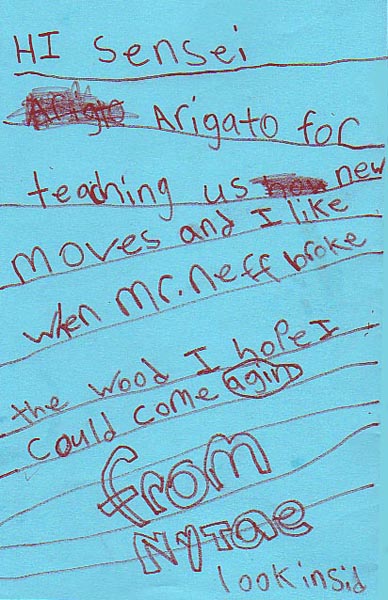 HI Sensei
Arigto Arigato for
teaching us how new
moves and I like
when mr. neff broke
the wood I hope I
could come agin
from
NyTae
look insid